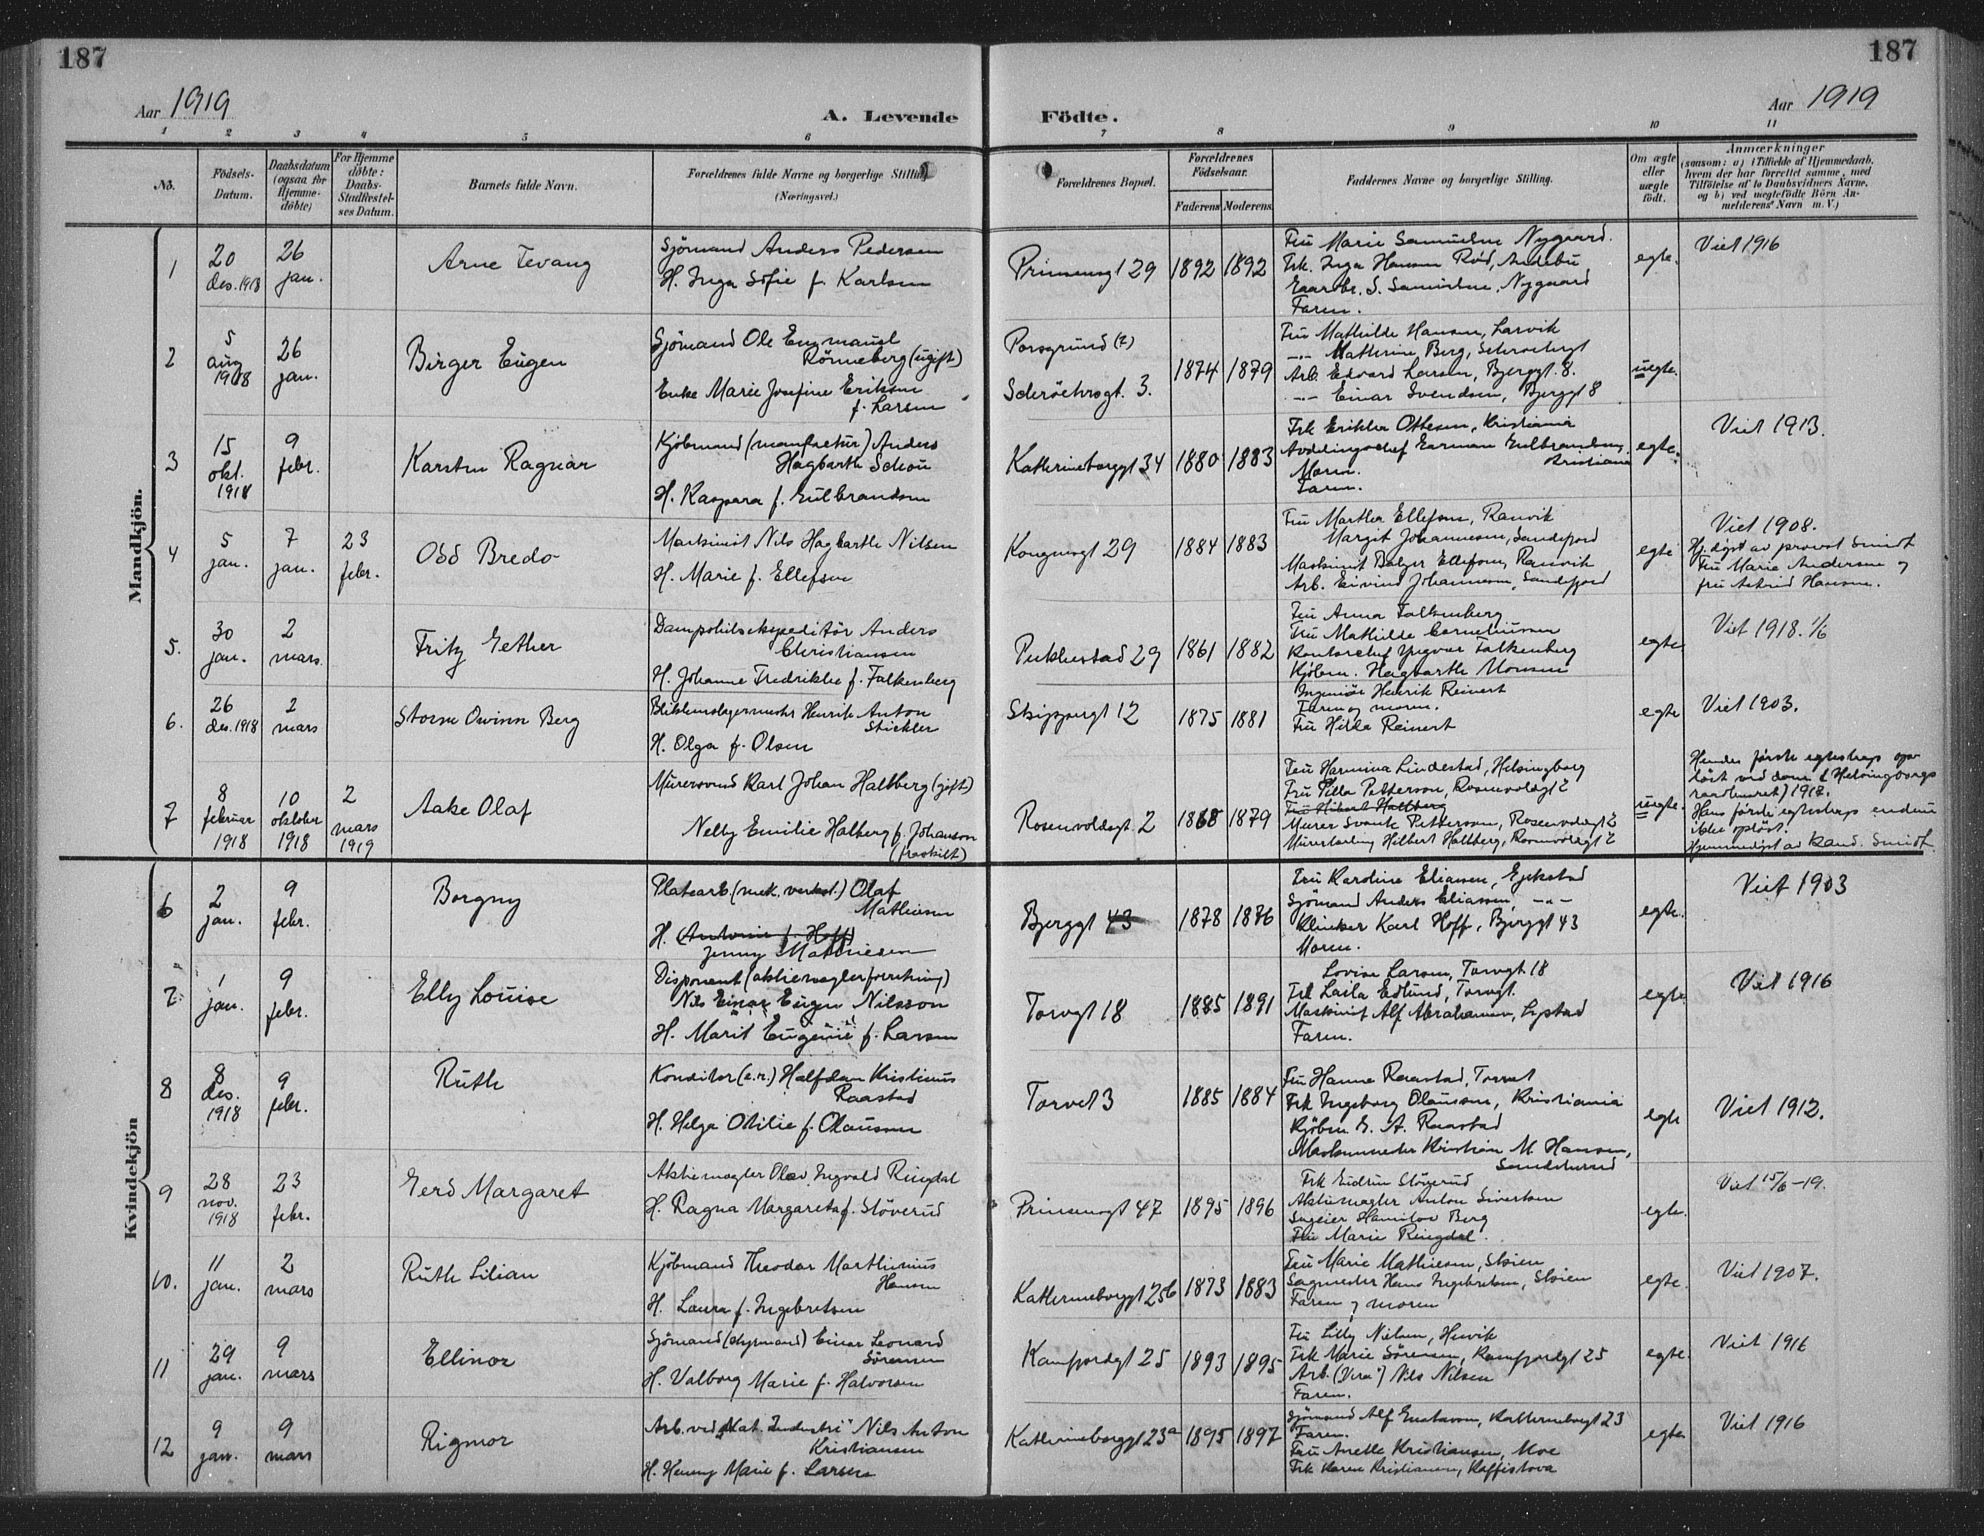 187
187
Aar 1919
A. Levende
Födte.
Aar 1919
1 2 3 4 5 6 7 8 9 10 11
No.
Födsels-Datum.
Daabsdatum (ogsaa for Hjemme-döbte)
For Hjemme döbte: Daabs-Stadfæstel-ses Datum.
Barnets fulde Navn.
Forældrenes fulde Navne og borgerlige Stilling
(Næringsvei.)
Forældrenes Bopæl.
Forældrenes Födselsaar.
Faderens
Moderens
Faddernes Navne og borgerlige Stilling.
Om ægte eller uægte födt.
Anmærkninger
(saasom: a) i Tilfælde af Hjemmedaab, hvem der har forrettet samme, med Tilföielse af to Daabsvidners Navne, og b) ved uegtefödte Börn Anmelderens Navn m. V.)
Mandkjön.
1
20 des. 1918
26 jan.
Arne Tevang
Sjömand Anders Pedersen
H. Inga Sofie f. Karlsen
Prinsensgt 29
1892 1892
Fru Marie Samuelsen Nygaard.
Frk. Inga Hansen Röd, Andebu
Gaardbr. S. Samuelsen, Nygaard
Faren.
egte.
Viet 1916
2
5 aug 1918
26 jan.
Birger Eugen
Sjömand Ole Enmanuel
Rönneberg (ugift)
Enke Marie Josefine Eriksen
f. Larsen
Porsgrund (?)
3.
1874 1879
Fru Mathilde Hansen, Larvik
-"- Mathrine Berg,
Arb. Edvard Larsen, Bjerggt. 8.
-"- Einar Svendsen, Bjerggt 8
uegte.
3
15 okt. 1918
9 febr.
Karsten Ragnar
Kjöbmand (manufactur) Anders
Hagbarth Schou
H. Kaspara f. Gulbrandsen
Kathrineborggt 34
1880 1883
Frk Ottesen, Kristiania
Avdelingschef Gulbrandsen,
Kristiania
Moren.
Faren.
egte.
Viet 1913.
4
5 jan.
7 jan.
23 febr.
Odd Bredo
Maskinist Nils Hagbarth Nilsen
H. Marie f. Ellefsen
Kongensgt 29
1884 1883
Fru Marthe Ellefsen, Ranvik
Margit Johannesen, Sandefjord
Maskinist Bolger Ellefsen, Ranvik
Arb. Eivind Johannesen, Sandefjord
egte
Viet 1908.
Hj. döpt av provst Smidt
Fru Marie Andersen og
fru Astrid Hansen.
5.
30 jan.
2 mars.
Fritz Gether
Dampskibsekspeditör Anders
Christiansen
H. Johanne Fredrikke f. Falkenberg
Pukkestad 29
1861 1882
Fru Anna Falkenberg
Fru Mathilde Corneliussen
Kontorchef Yngvar Falkenberg
Kjöbm. Hagbarth Monsen
egte
Viet 1918. 1/6
6.
26 des. 1918
2 mars
Berg
Blikkenslagermester Henrik Anton
Stickler
H. Olga f. Olsen
Skippergt 12
1875 1881
Ingeniör Henrik Reinert
Faren og moren.
Fru Hilda Reinert
egte
Viet 1903.
7
8 februar 1918
10 oktober 1918
2 mars 1919
Aake Olaf
Murersvend Karl Johan Hallberg (gift)
Nelly Emilie Halberg f. Johanson
(fraskilt)
Rosenvoldsgt. 2
1868 1879
Fru Harmina Lindestad, Helsingborg
Fru Pella Petterson, Rosenvoldsgt 2
Murer Svante Petterson, Rosenvoldsgt 2
Murerlærling Hilbert Hallberg, Rosenvoldsgt 2
uegte.
Hendes förste egteskap op-
löst ved dom (Helsingborgs
raadhusret) 1918.
Hans förste egteskap endnu
ikke oplöst.
Hjemmedöpt av kand. Smidt
Kvindekjön
6
2 jan.
9 febr.
Borgny
Platearb. (mek. verkst.) Olaf
Mathiesen
H. (Antonie f. Hoff)
Jenny Mathiesen
Bjerggt 43
1878 1876
Fru Karoline Eliassen, Gjekstad
Sjömand Anders Eliassen, -"-
Klinker Karl Hoff, Bjerggt 43
Moren.
egte.
Viet 1903
7
1 jan.
9 febr.
Elly Louise
Disponent (aktiemæglerforretning)
Nils Einar Eugen Nilsson
H. Marit Eugenie f. Larsen
Torvgt 18
1885 1891
Lovise Larsen, Torvgt. 18
Frk Laila Edlund, Torvgt.
Maskinist Alf Abrahamsen, Lystad
Faren.
egte
Viet 1916
8
8 des. 1918
9 febr.
Ruth
Konditor (e.r.) Halfdan Kristinus
Raastad
H. Helga Otilie f. Olausen
Torvet 3
1885 1884
Fru Hanna Raastad, Torvet
Frk Ingeborg Olausen, Kristiania
Kjöbm. G. A. Raastad
Maskinmester Kristian M. Hansen,
egte
Viet 1912.
9
28 nov. 1918
23 febr.
Gerd Margaret
Aktiemægler Olav Ingvald Ringdal
H. Ragna Margareta f. Stöverud
Prinsensgt 47
1895 1896
Frk Gudrun Stöverud
Aktiemægler Anton Sivertsen
Berg
Fru Marie Ringdal.
egte.
Viet 15/6-19.
10.
11 jan.
2 mars
Ruth Lilian
Kjöbmand Theodor Marthinius
Hansen
H. Laura f. Ingebretsen
Kathrineborggt 25b
1873 1883
Fru Marie Mathiesen, Skien
Sagmester Hans Ingebretsen, Skien
Faren og moren
egte.
Viet 1907.
11
29 jan.
9 mars
Ellinor
Sjömand (styrmand) Einar Leonard
Sörensen
H. Valborg Marie f. Halvorsen
Kamfjordgt 25
1893 1895
Fru Lilly Nielsen, Huvik
Frk Marie Sörensen, Kamfjordgt 25
Arb. ("Vera") Nils Nilsen
Faren.
egte.
Viet 1916
12
9 jan.
9 mars
Rigmor
Arb. ved "Nat. Industri" Nils Anton
Kristiansen
H. Henny Marie f. Larsen
Kathrineborggt 23a
1895 1897
Sjömand Alf Gustavsen, Kathrineborggt 23
Faren.
Fru Anette Kristiansen, Moe
Frk Karen Kristiansen, Kaffistova
egte
Viet 1916